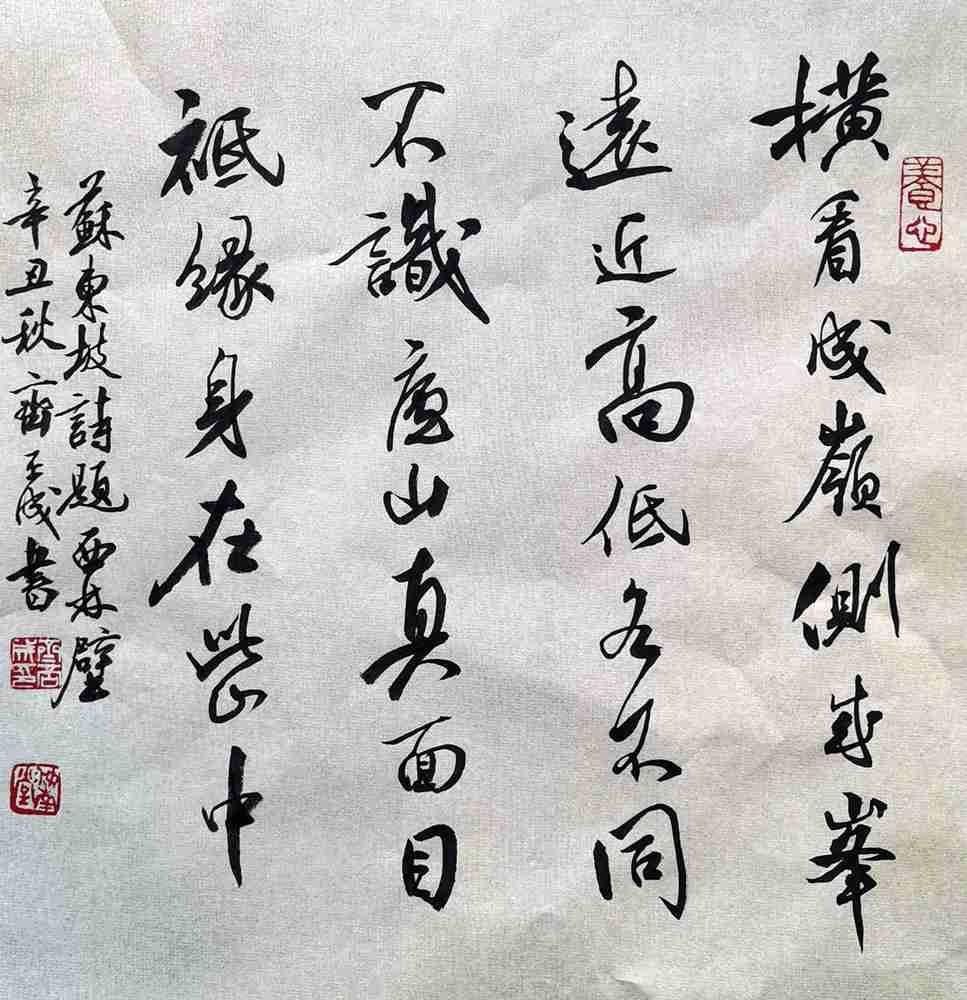 横看成嶺側成峯
遠近高低各不同
不識廬山真面目
祗緣身在此山中
蘇東坡詩題西林壁
辛丑秋齊玉成書
養心